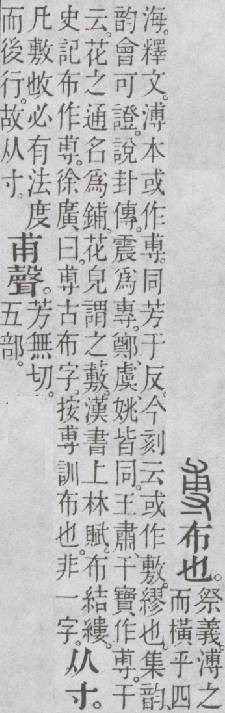 尃
布也。
祭義。溥之
而橫乎四
海。釋文。溥本或作尃。同芳于反。今刻云或作敷。繆也。集韵、
韵會可證。說卦傳。震爲專。鄭、虞、姚皆同。王肅、干寶作尃。干
云。花之通名爲鋪。花皃謂之藪。漢書上林賦。布結縷。
史記布作尃。徐廣曰。尃古布字。按尃訓布也。非一字。
从寸。
凡敷必有法度
而後行。故从寸。
甫聲。
芳無切。
五部。